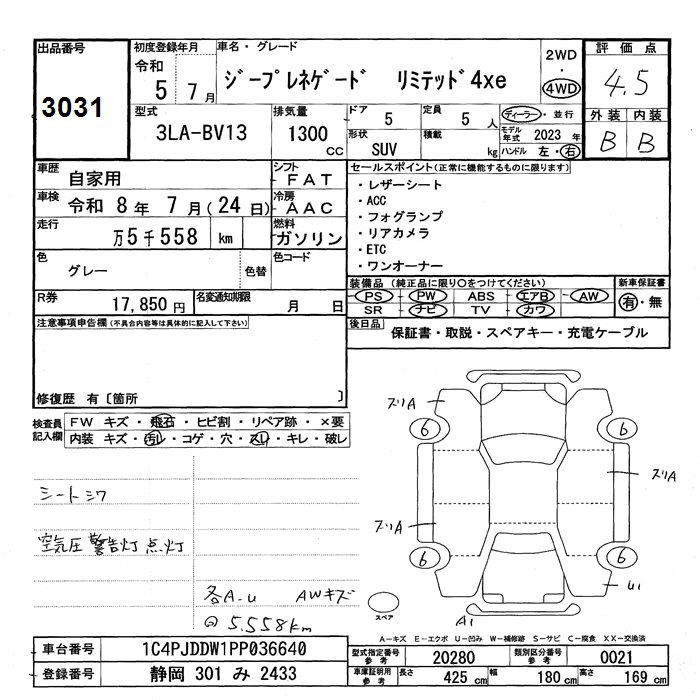 出品番号
3031
初度登録年月
令和
5 7月
車名・グレード
ジープレネゲード リミテッド4xe
2WD
・
4WD
評価点
4.5
外装 内装
B B
型式
3LA-BV13
排気量
1300
CC
ドア
5
定員
5 人
形状
SUV
積載
kg
ディーラー・並行
モデル年式 2023 年
ハンドル 左・右
車歴
自家用
シフト
FAT
車検
令和 8年 7月(24日)
冷房
AAC
走行
万5千558 km
燃料
ガソリン
色
グレー
色替
色コード
R券
17,850円
名変通知期限
月 日
セールスポイント(正常に機能するものに限ります)
・レザーシート
・ACC
・フォグランプ
・リアカメラ
・ETC
・ワンオーナー
装備品 (純正品に限り○をつけてください)
PS - PW - ABS - エアB - AW
SR - ナビ - TV - カワ
新車保証書
有・無
後日品
保証書・取説・スペアキー・充電ケーブル
注意事項申告欄(不具合内容等は具体的に記入して下さい)
修復歴 有〔箇所 〕
検査員
記入欄
FW キズ・飛石・ヒビ割・リペア跡・×要
内装 キズ・汚レ・コゲ・穴・スレ・キレ・破レ
シートシワ
空気圧 警告灯 点灯
各A-U AWキズ
@ 5.558km
ズリA
6 6
ズリA
ズリA
6 6
U1
A1
スペア
A-キズ E-エクボ U-凹み W-補修跡 S-サビ C-腐食 XX-交換済
車台番号
1C4PJDDW1PP036640
登録番号
静岡 301 み 2433
型式指定番号
参考
20280
類別区分番号
参考
0021
車庫証明用
参考
長さ
425 cm
幅
180 cm
高さ
169 cm